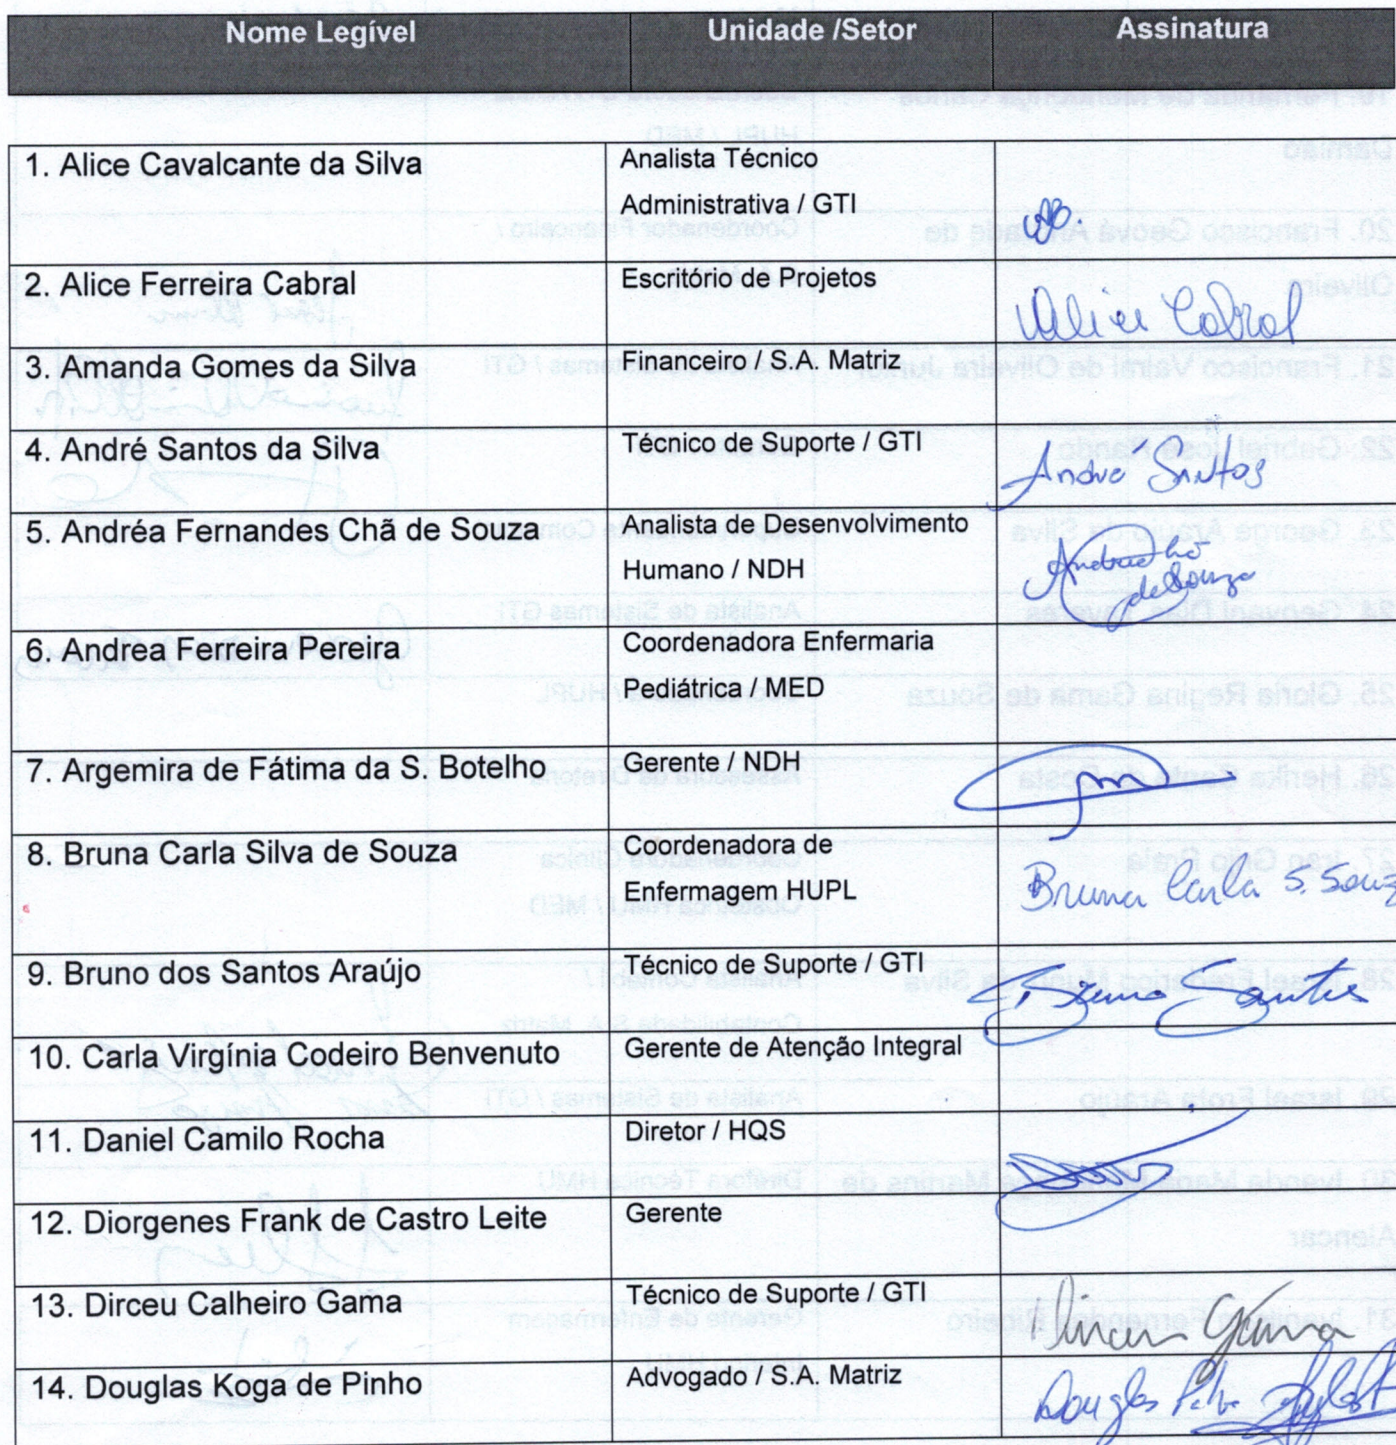 Nome Legível Unidade /Setor Assinatura
1. Alice Cavalcante da Silva Analista Técnico
Administrativa / GTI
2. Alice Ferreira Cabral Escritório de Projetos
Alice Cabral
3. Amanda Gomes da Silva Financeiro / S.A. Matriz
4. André Santos da Silva Técnico de Suporte / GTI
André Santos
5. Andréa Fernandes Chã de Souza Analista de Desenvolvimento
Humano / NDH
de Souza
6. Andrea Ferreira Pereira Coordenadora Enfermaria
Pediátrica / MED
7. Argemira de Fátima da S. Botelho Gerente / NDH
8. Bruna Carla Silva de Souza Coordenadora de
Enfermagem HUPL Bruna Carla S. Souz
9. Bruno dos Santos Araújo Técnico de Suporte / GTI
Bruno Santos
10. Carla Virgínia Codeiro Benvenuto Gerente de Atenção Integral
11. Daniel Camilo Rocha Diretor / HQS
12. Diorgenes Frank de Castro Leite Gerente
13. Dirceu Calheiro Gama Técnico de Suporte / GTI
Dirceu Gama
14. Douglas Koga de Pinho Advogado / S.A. Matriz
Douglas